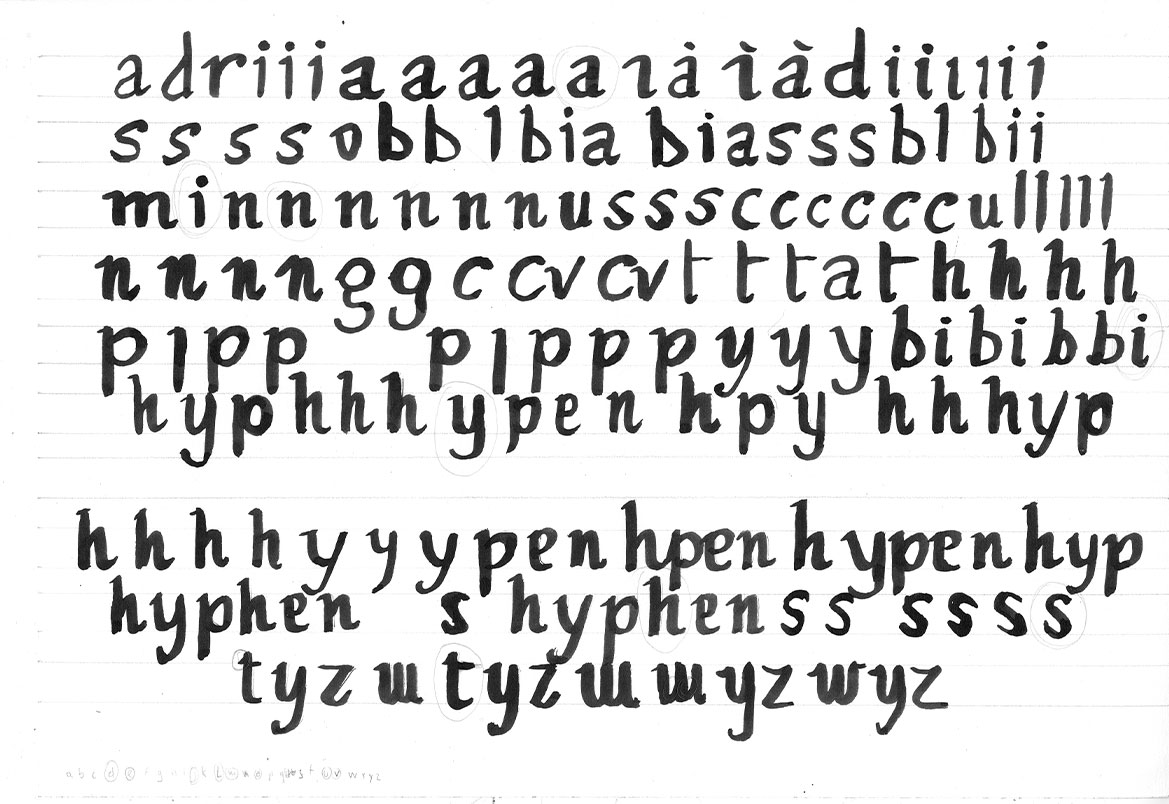 adriiiaaaaaıàìàdiiıııi
ssssobblbia biasssblbii
minnnnnnusssccccccullll
nnnnggccvcvtttathhhh
pıpp pıpppyyybibibbi
hyphhhypen hpy hhhyp
hhhhyyypenhpenhypenhyp
hyphen s hyphenss ssss
tyzwtyzwwyzwyz